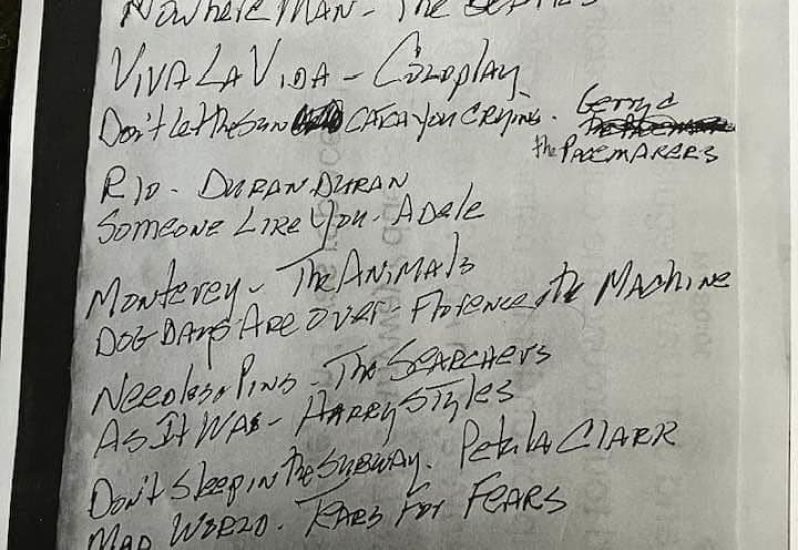 Nowhere Man - The Beatles
Viva La Vida - Coldplay
Don't Let the Sun Catch You Crying. Gerry &
the Pacemakers
Rio - Duran Duran
Someone Like You - Adele
Monterey - The Animals
Dog Days Are Over - Florence & the Machine
Needles & Pins - The Searchers
As It Was - Harry Styles
Don't Sleep in the Subway. Petula Clark
Mad World. Tears for Fears